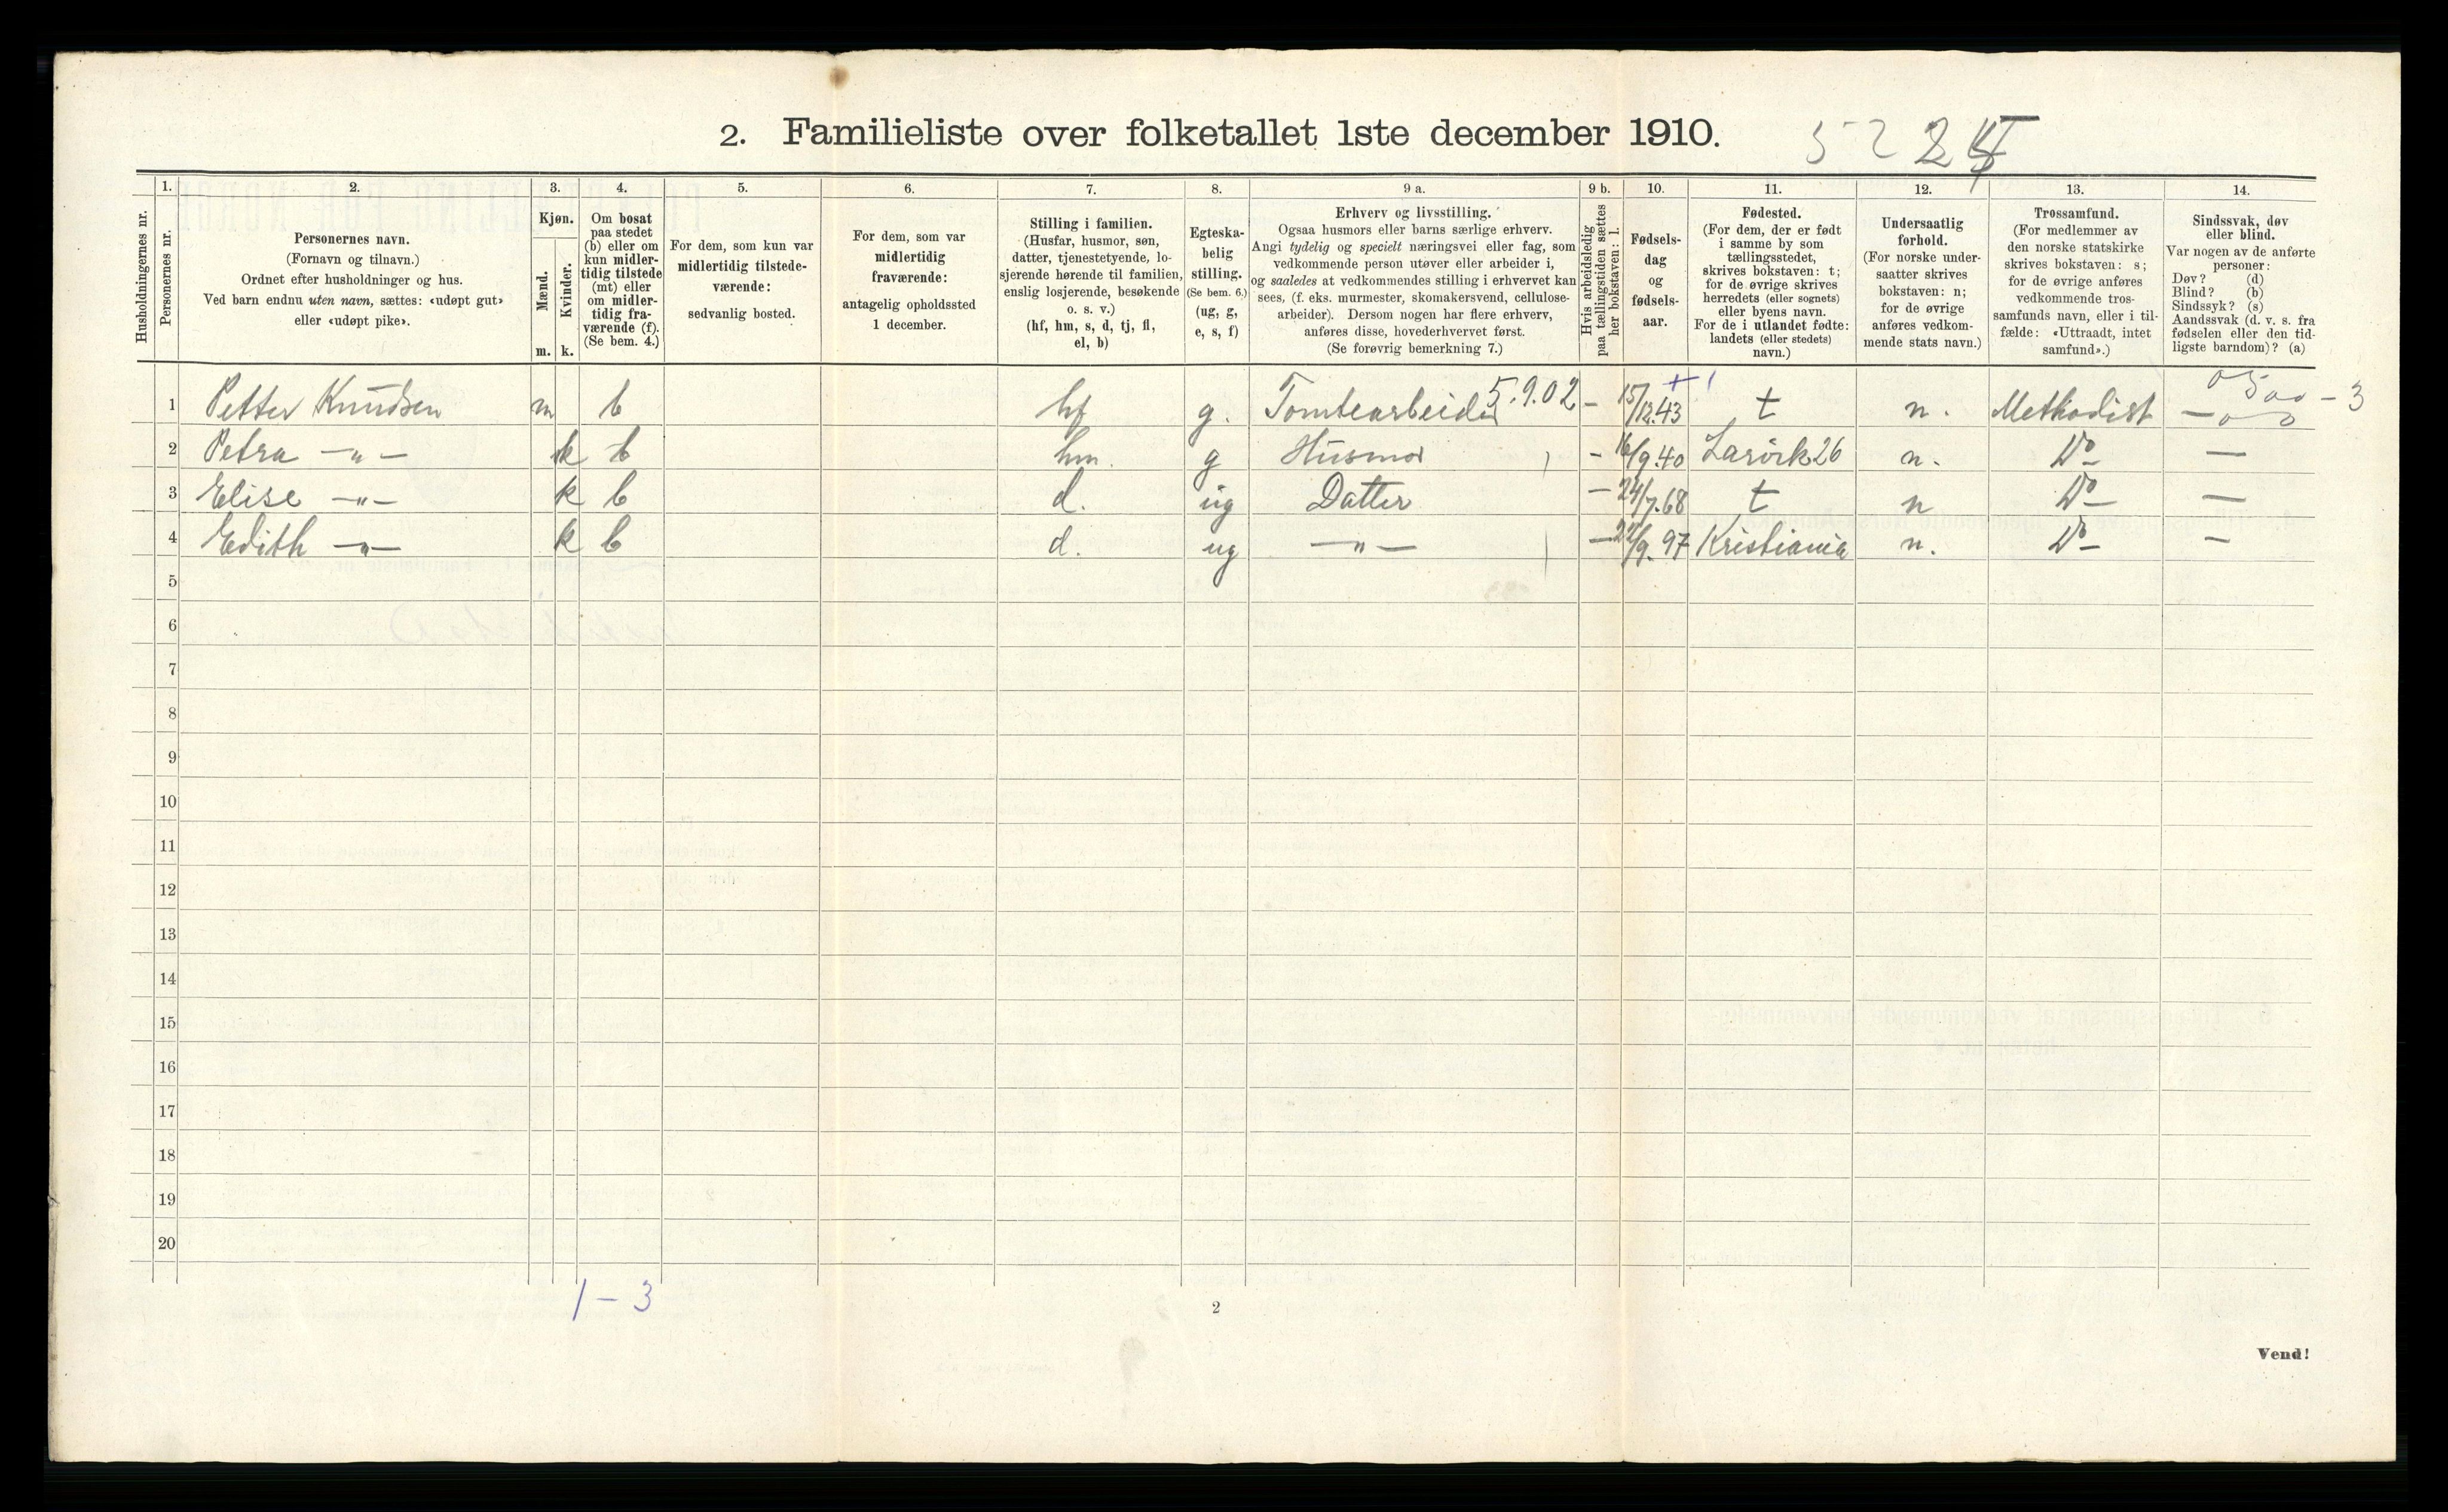 2. Familieliste over folketallet 1ste december 1910.
1. 2. 3. 4. 5. 6. 7. 8. 9 a. 9 b. 10. 11. 12. 13. 14.
Husholdningernes nr.
Personernes nr.
Personernes navn.
(Fornavn og tilnavn.)
Ordnet efter husholdninger og hus.
Ved barn endnu uten navn, sættes: «udøpt gut»
eller «udøpt pike».
Kjøn.
Mænd.
m.
Kvinder.
k.
Om bosat
paa stedet
(b) eller om
kun midler-
tidig tilstede
(mt) eller
om midler-
tidig fra-
værende (f).
(Se bem. 4.)
For dem, som kun var
midlertidig tilstede-
værende:
sedvanlig bosted.
For dem, som var
midlertidig
fraværende:
antagelig opholdssted
1 december.
Stilling i familien.
(Husfar, husmor, søn,
datter, tjenestetyende, lo-
sjerende hørende til familien,
enslig losjerende, besøkende
o. s. v.)
(hf, hm, s, d, tj, fl,
el, b)
Egteska-
belig
stilling.
(Se bem. 6.)
(ug, g,
e, s, f)
Erhverv og livsstilling.
Ogsaa husmors eller barns særlige erhverv.
Angi tydelig og specielt næringsvei eller fag, som
vedkommende person utøver eller arbeider i,
og saaledes at vedkommendes stilling i erhvervet kan
sees, (f. eks. murmester, skomakersvend, cellulose-
arbeider). Dersom nogen har flere erhverv,
anføres disse, hovederhvervet først.
(Se forøvrig bemerkning 7.)
Hvis arbeidsledig
paa tællingstiden sættes
her bokstaven: l.
Fødsels-
dag
og
fødsels-
aar.
Fødested.
(For dem, der er født
i samme by som
tællingsstedet,
skrives bokstaven: t;
for de øvrige skrives
herredets (eller sognets)
eller byens navn.
For de i utlandet fødte:
landets (eller stedets)
navn.)
Undersaatlig
forhold.
(For norske under-
saatter skrives
bokstaven: n;
for de øvrige
anføres vedkom-
mende stats navn.)
Trossamfund.
(For medlemmer av
den norske statskirke
skrives bokstaven: s;
for de øvrige anføres
vedkommende tros-
samfunds navn, eller i til-
fælde: «Uttraadt, intet
samfund».)
Sindssvak, døv
eller blind.
Var nogen av de anførte
personer:
Døv? (d)
Blind? (b)
Sindssyk? (s)
Aandssvak (d. v. s. fra
fødselen eller den tid-
ligste barndom)? (a)
1 Petter Knudsen m b hf g. Tomtearbeider 5.9.02 - 15/12.43 t n. Methodist —
2 Petra —„— k b hm. g Husmor - 16/9.40 Larvik 26 n. Do —
3 Elise —„— k b d. ug Datter — 24/7.68 t n Do —
4 Edith —„— k b d. ug —„— — 22/9.97 Kristiania n. Do —
5
6
7
8
9
10
11
12
13
14
15
16
17
18
19
20
1 — 3
2
Vend!